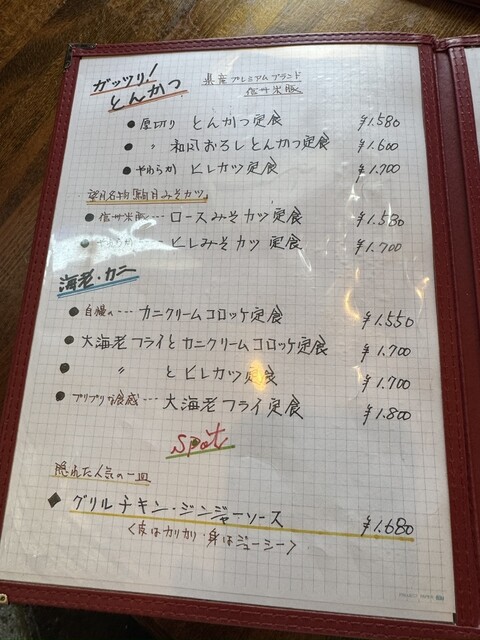 ガッツリ!
とんかつ
県産プレミアムブランド
信州米豚
● 厚切り とんかつ定食 ¥1.580
● 〃 和風おろしとんかつ定食 ¥1.600
● やわらか ヒレカツ定食 ¥1.700
望月名物駒月みそカツ。
● 信州米豚… ロースみそカツ定食 ¥1.580
● ヒレみそカツ定食 ¥1.700
海老・カニ
● 自慢の… カニクリームコロッケ定食 ¥1.550
● 大海老フライとカニクリームコロッケ定食 ¥1.700
● 〃 とヒレカツ定食 ¥1.700
● プリプリ食感… 大海老フライ定食 ¥1.800
Spot
隠れた人気の一皿
◆ グリルチキン・ジンジャーソース ¥1.680
〈皮はカリカリ・身はジューシー〉